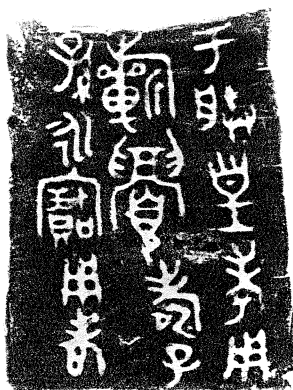 于朕皇考用
旂眉壽子
孫永寶用享